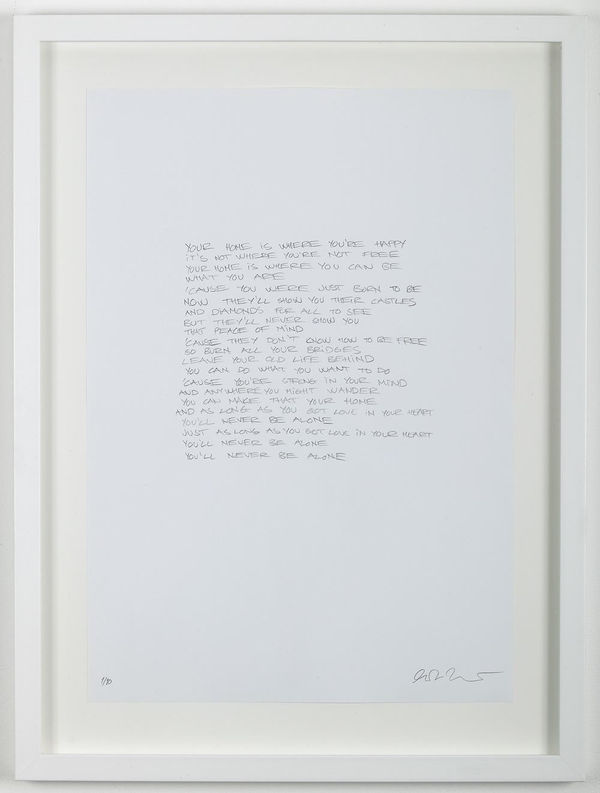 YOUR HOME IS WHERE YOU'RE HAPPY
IT'S NOT WHERE YOU'RE NOT FREE
YOUR HOME IS WHERE YOU CAN BE
WHAT YOU ARE
'CAUSE YOU WERE JUST BORN TO BE
NOW THEY'LL SHOW YOU THEIR CASTLES
AND DIAMONDS FOR ALL TO SEE
BUT THEY'LL NEVER SHOW YOU
THAT PEACE OF MIND
'CAUSE THEY DON'T KNOW HOW TO BE FREE
SO BURN ALL YOUR BRIDGES
LEAVE YOUR OLD LIFE BEHIND
YOU CAN DO WHAT YOU WANT TO DO
'CAUSE YOU'RE STRONG IN YOUR MIND
AND ANYWHERE YOU MIGHT WANDER
YOU CAN MAKE THAT YOUR HOME
AND AS LONG AS YOU GOT LOVE IN YOUR HEART
YOU'LL NEVER BE ALONE
JUST AS LONG AS YOU GOT LOVE IN YOUR HEART
YOU'LL NEVER BE ALONE
YOU'LL NEVER BE ALONE
1/10